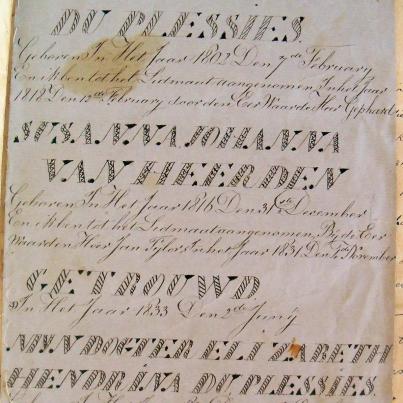 DU PLESSIES
Geboren In Het Jaar 1802 Den 7de February
En ik ben tot het Lidmaat aangenomen In het Jaar
1818 Den 12de February door den Eer Waarde Heer Gephard
SUSANNA JOHANNA
VAN HEERDEN
Geboren In Het Jaar 1816 Den 31ste Desember
Een ik ben tot het Lidmaat aangenomen, By de Eer
Waarden Heer Jan Tyler, In het Jaar 1831 Den November
GETROUWD
In Het Jaar 1833 Den 2de Juny
ELIZABETH
HENDRINA DU PLESSIES